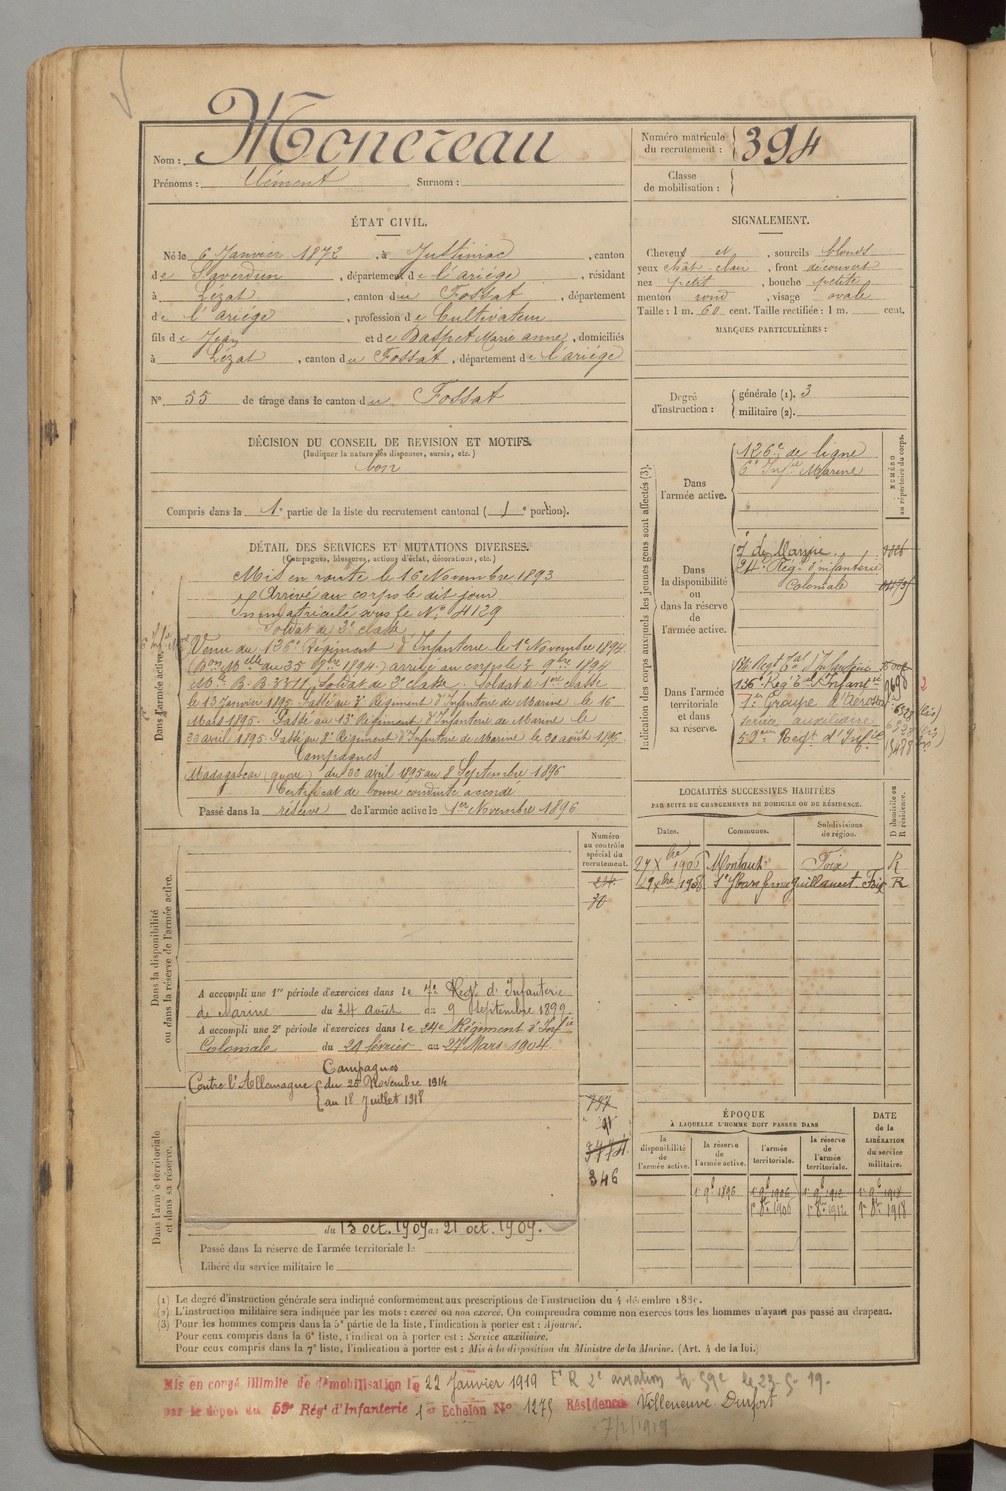 Nom : Monereau
Prénoms : Clément Surnom :
Numéro matricule du recrutement : 394
Classe de mobilisation :
ÉTAT CIVIL.
Né le 6 Janvier 1872, à Justiniac, canton
de Saverdun, département de l'ariége, résidant
à Lézat, canton du Fossat, département
de l'ariége, profession de Cultivateur
fils de Jean et de Marie anne, domiciliés
à Lézat, canton du Fossat, département de l'ariége
N° 55 de tirage dans le canton du Fossat
SIGNALEMENT.
Cheveux et, sourcils blonds
yeux chât. clair, front découvert
nez petit, bouche petite
menton rond, visage ovale
Taille : 1 m. 60 cent. Taille rectifiée : 1 m. cent.
MARQUES PARTICULIÈRES :
Degré d'instruction : générale (1). 3
militaire (2).
DÉCISION DU CONSEIL DE REVISION ET MOTIFS.
(Indiquer la nature des dispenses, sursis, etc.)
bon
Compris dans la 1e partie de la liste du recrutement cantonal (1e portion).
DÉTAIL DES SERVICES ET MUTATIONS DIVERSES.
(Campagnes, blessures, actions d'éclat, décorations, etc.)
Dans l'armée active.
Mis en route le 16 Novembre 1893
Arrivé au corps le dit jour
Immatriculé sous le N° 4129
Soldat de 2e classe
Venu du 126e Régiment d'Infanterie le 1er Novembre 1894
arrivé au corps le 3 9bre 1894
Soldat de 2e classe. Soldat de 1ère classe
le 13 Janvier 1895. Passé au 3e Régiment d'Infanterie de Marine le 16
Mars 1895. Passé au 13e Régiment d'Infanterie de Marine le
22 avril 1895. Passé au 8e Régiment d'Infanterie de Marine le 20 août 1896
Campagnes
Madagascar (guerre) du 22 avril 1895 au 8 Septembre 1896
Certificat de bonne conduite accordé
Passé dans la réserve de l'armée active le 1er Novembre 1896
Indication des corps auxquels les jeunes gens sont affectés (3).
NUMÉRO au répertoire du corps.
Dans l'armée active.
126e de ligne
6e Infie Marine
Dans la disponibilité ou dans la réserve de l'armée active.
7e de Marine.
24e Régt d'infanterie
Coloniale
Dans l'armée territoriale et dans sa réserve.
136e Régt Tal d'Infantie
1er Groupe d'Aérosta
service auxiliaire
59eme Regt d'Infie
LOCALITÉS SUCCESSIVES HABITÉES
PAR SUITE DE CHANGEMENTS DE DOMICILE OU DE RÉSIDENCE.
D domicile ou R résidence.
Dates. Communes. Subdivisions de région.
27 Xbre 1906 Montaut Foix R
29 Xbre 1908 St Ybars ferme Guillaumet Foix R
Numéro au contrôle spécial du recrutement.
30
Dans la disponibilité ou dans la réserve de l'armée active.
A accompli une 1re période d'exercices dans le 7e Regt d'Infanterie
de Marine du 24 août au 9 Septembre 1899
A accompli une 2e période d'exercices dans le 24e Régiment d'Infie
Coloniale du 29 février au 27 Mars 1904.
Dans l'armée territoriale et dans sa réserve.
Campagnes
Contre l'Allemagne du 20 Novembre 1914
au 18 Juillet 1918
797
91
346
du 13 oct. 1909 au 21 oct. 1909.
Passé dans la réserve de l'armée territoriale le
Libéré du service militaire le
ÉPOQUE
À LAQUELLE L'HOMME DOIT PASSER DANS
DATE de la LIBÉRATION du service militaire.
la disponibilité de l'armée active.
la réserve de l'armée active.
l'armée territoriale.
la réserve de l'armée territoriale.
1er 9b 1896 1er 9b 1906 1er 9b 1912 1er 9b 1918
1er 8bre 1906 1er 8bre 1912 1er 8bre 1918
(1) Le degré d'instruction générale sera indiqué conformément aux prescriptions de l'instruction du 4 décembre 1889.
(2) L'instruction militaire sera indiquée par les mots : exercé ou non exercé. On comprendra comme non exercés tous les hommes n'ayant pas passé au drapeau.
(3) Pour les hommes compris dans la 5e partie de la liste, l'indication à porter est : Ajourné.
Pour ceux compris dans la 6e liste, l'indication à porter est : Service auxiliaire.
Pour ceux compris dans la 7e liste, l'indication à porter est : Mis à la disposition du Ministre de la Marine. (Art. 4 de la loi.)
Mis en congé illimité de démobilisation le 22 Janvier 1919 2e aviation 59e le 23-5-19.
par le dépôt du 59e Régt d'Infanterie 1er Echelon N° 1275 Résidence Villeneuve Durfort
7/2/1919